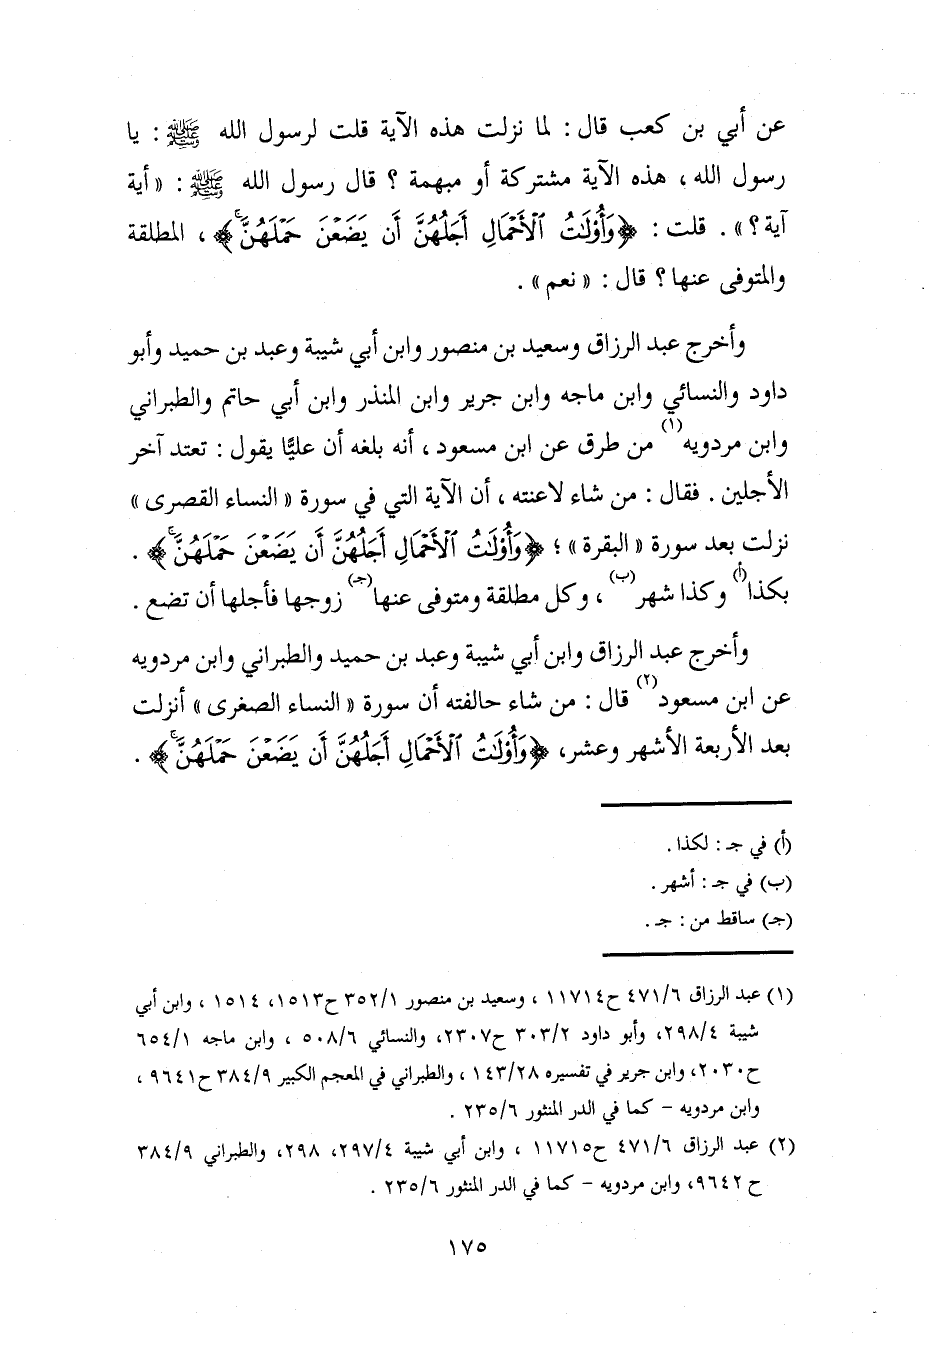 عن أبي بن كعب قال : لما نزلت هذه الآية قلت لرسول الله ﷺ : يا
رسول الله ، هذه الآية مشتركة أو مبهمة ؟ قال رسول الله ﷺ : « أية
آية ؟ » . قلت : ﴿وَأُوْلَٰتُ ٱلْأَحْمَالِ أَجَلُهُنَّ أَن يَضَعْنَ حَمْلَهُنَّۚ﴾ ، المطلقة
والمتوفى عنها ؟ قال : « نعم » .
وأخرج عبد الرزاق وسعيد بن منصور وابن أبي شيبة وعبد بن حميد وأبو
داود والنسائي وابن ماجه وابن جرير وابن المنذر وابن أبي حاتم والطبراني
وابن مردويه(١) من طرق عن ابن مسعود ، أنه بلغه أن عليًّا يقول : تعتد آخر
الأجلين . فقال : من شاء لاعنته ، أن الآية التي في سورة « النساء القصرى »
نزلت بعد سورة « البقرة » ؛ ﴿وَأُوْلَٰتُ ٱلْأَحْمَالِ أَجَلُهُنَّ أَن يَضَعْنَ حَمْلَهُنَّۚ﴾ .
بكذا(أ) وكذا شهر(ب) ، وكل مطلقة ومتوفى عنها(جـ) زوجها فأجلها أن تضع .
وأخرج عبد الرزاق وابن أبي شيبة وعبد بن حميد والطبراني وابن مردويه
عن ابن مسعود(٢) قال : من شاء حالفته أن سورة « النساء الصغرى » أنزلت
بعد الأربعة الأشهر وعشر، ﴿وَأُوْلَٰتُ ٱلْأَحْمَالِ أَجَلُهُنَّ أَن يَضَعْنَ حَمْلَهُنَّۚ﴾ .
(أ) في جـ : لكذا .
(ب) في جـ : أشهر .
(جـ) ساقط من : جـ .
(١) عبد الرزاق ٤٧١/٦ ح١١٧١٤ ، وسعيد بن منصور ٣٥٢/١ ح١٥١٣، ١٥١٤ ، وابن أبي
شيبة ٢٩٨/٤، وأبو داود ٣٠٣/٢ ح٢٣٠٧، والنسائي ٥٠٨/٦ ، وابن ماجه ٦٥٤/١
ح٢٠٣٠، وابن جرير في تفسيره ١٤٣/٢٨ ، والطبراني في المعجم الكبير ٣٨٤/٩ ح٩٦٤١ ،
وابن مردويه – كما في الدر المنثور ٢٣٥/٦ .
(٢) عبد الرزاق ٤٧١/٦ ح١١٧١٥ ، وابن أبي شيبة ٢٩٧/٤، ٢٩٨، والطبراني ٣٨٤/٩
ح ٩٦٤٢، وابن مردويه – كما في الدر المنثور ٢٣٥/٦ .
١٧٥